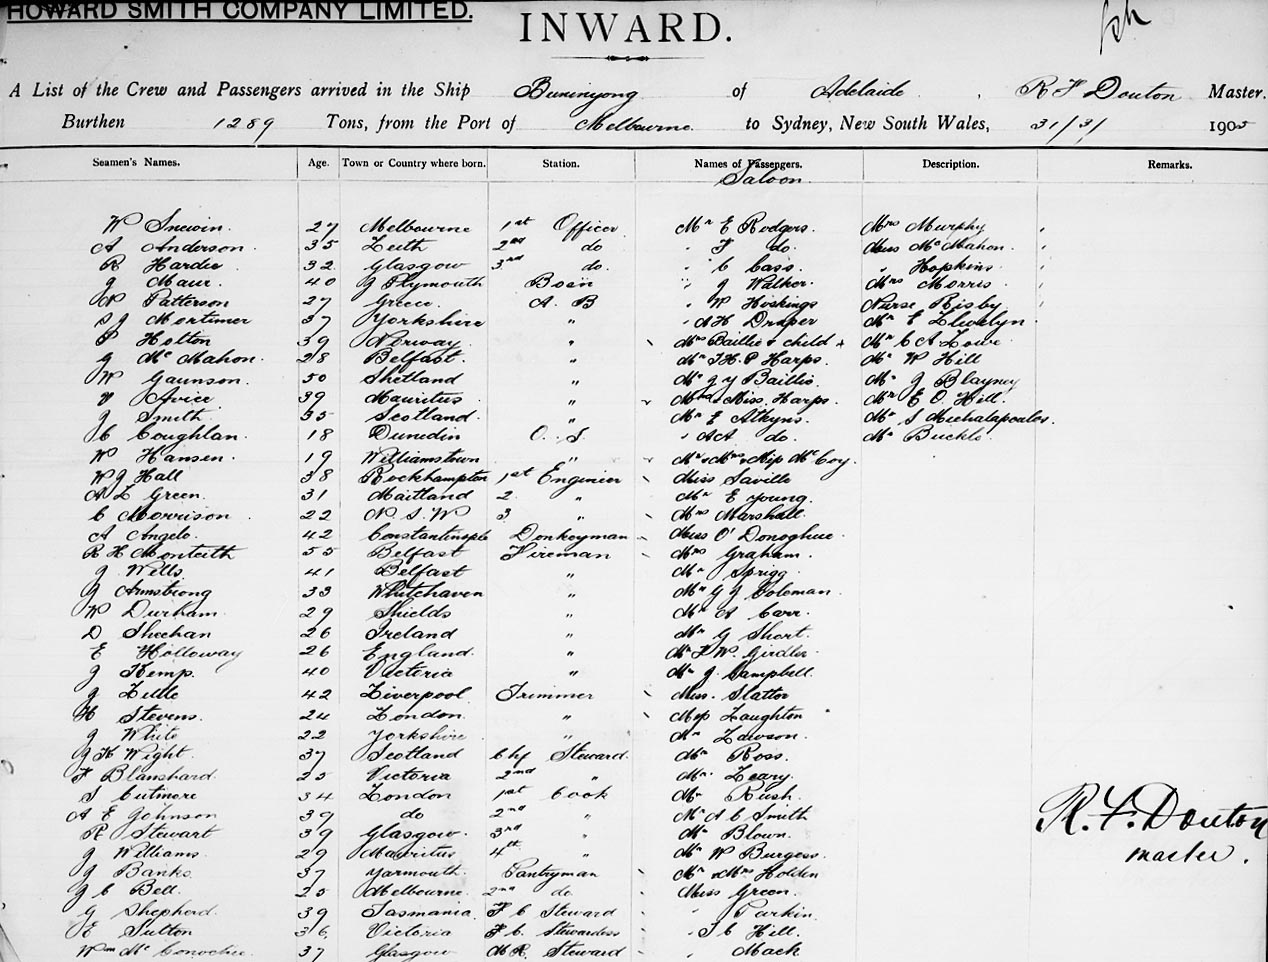 HOWARD SMITH COMPANY LIMITED.
INWARD.
A List of the Crew and Passengers arrived in the Ship Buninyong of Adelaide, R F Douton Master.
Burthen 1289 Tons, from the Port of Melbourne to Sydney, New South Wales, 31/3/ 1905
Seamen's Names. Age. Town or Country where born. Station. Names of Passengers. Description. Remarks.
Saloon.
W 27 Melbourne 1st Officer Mr E Rodgers. Mrs Murphy
A Anderson. 35 Leith 2nd do " F do. Miss McMahon.
R Hardie 32 Glasgow 3rd do. " C Cass. " Hopkins
J Maur. 40 Plymouth Bosn " J Walker. Mrs Morris
N Patterson 27 Greece. A. B " W Hoskings Nurse Risby
S J Mortimer 37 Yorkshire " " A H Draper Mr E Llwelyn.
P Holton 39 Norway. " Mrs Baillie & child Mr C A Lowe.
J McMahon. 28 Belfast. " Mr J. H. P Harps. Mr W Hill
W Gaunson. 50 Shetland " Mr J Y Baillie. Mr J Blayney
V Avice 39 Mauritus " Miss. Harps. Mr E O. Hill.
J Smith 35 Scotland. " Mr E Atkyns. Mr S Michalapoulos.
C Coughlan. 18 Dunedin O. S. " A A do. Mr Buckle.
W Hansen. 19 Williamstown " Mr & Mrs & Miss McCoy.
W J Hall 38 Rockhampton 1st Engineer Miss Saville
A L Green. 31 Maitland 2 " Mr E Young.
C Morrison. 22 N. S. W 3 " Mrs Marshall.
A Angelo. 42 Constantinople Donkeyman Miss O'Donoghue.
R H Monteith 55 Belfast Fireman Mrs Graham.
J Wells 41 Belfast " Mr Sprigg.
J Armstrong 33 Whitehaven " Mr G J Coleman.
W Durham. 29 Shields " Mr A Carr.
D Sheehan 26 Ireland " Mr G Short.
E Holloway 26 England. " Mr F. W. Girdler.
J Kemp. 40 Victoria " Mr J. Campbell.
J Little 42 Liverpool. Trimmer Miss. Slatter
H Stevens. 24 London. " Miss Laughton
J White 22 Yorkshire " Mr Lawson.
J H Wight. 37 Scotland Chf Steward. Mr Ross.
F Blanshard. 25 Victoria 2nd " Mr. Leary.
S Cutmore 34 London 1st Cook Mr Rush.
A E Johnson 39 do 2nd " Mr A C Smith
R Stewart 39 Glasgow. 3rd " Mr Blown.
J Williams. 29 Mauritus 4th " Mr W Burgess.
J Banks. 37 Yarmouth. Pantryman Mr & Mrs Holden
J C Bell. 25 Melbourne. 2nd do. Miss Green.
G Shepherd. 39 Tasmania. F C Steward " Parkin.
E Sutton 36 Victoria F. C. Stewardess " J C Hill.
Wm McConochie. 37 Glasgow M. R. Steward " Mack
R. F. Douton
master.